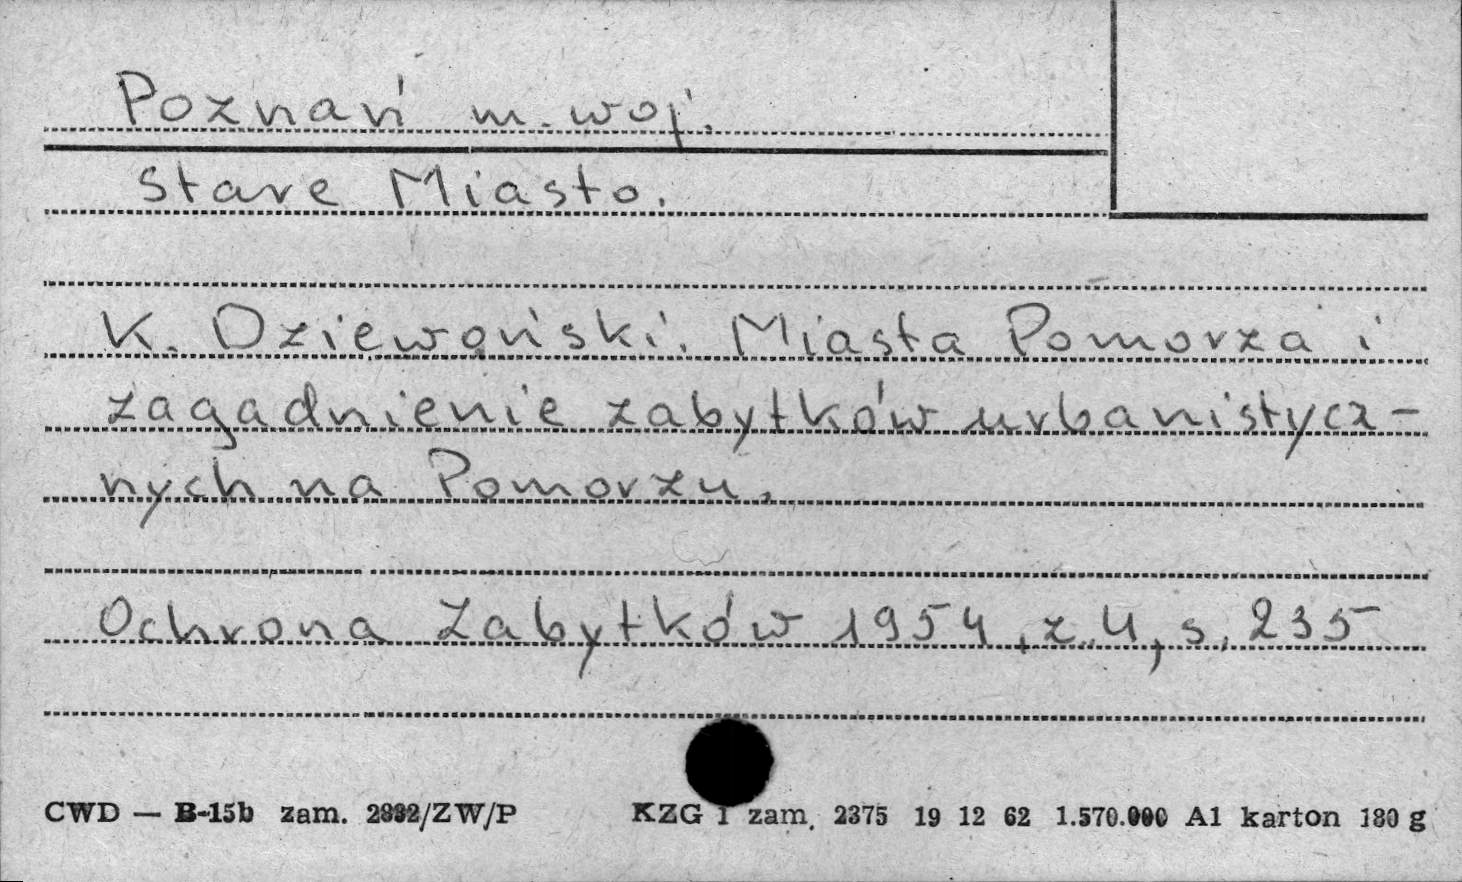 Poznań m. woj.
Stare Miasto.
K. Dziewoński. Miasta Pomorza i
zagadnienie zabytków urbanistycz-
nych na Pomorzu.
Ochrona Zabytków 1954, z. 4, s. 235
CWD — B-15b zam. 2932/ZW/P KZG 1 zam. 2375 19 12 62 1.570.000 A1 karton 180 g